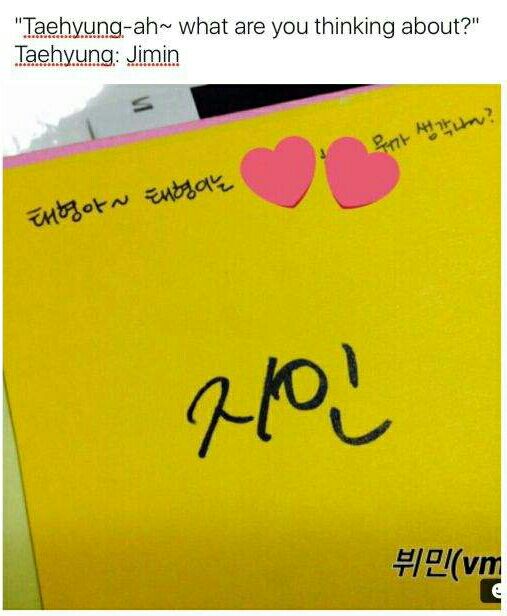 "Taehyung-ah~ what are you thinking about?"
Taehyung: Jimin
태형아~ 태형이는 뭐가 생각나~?
지민
뷔민(vm